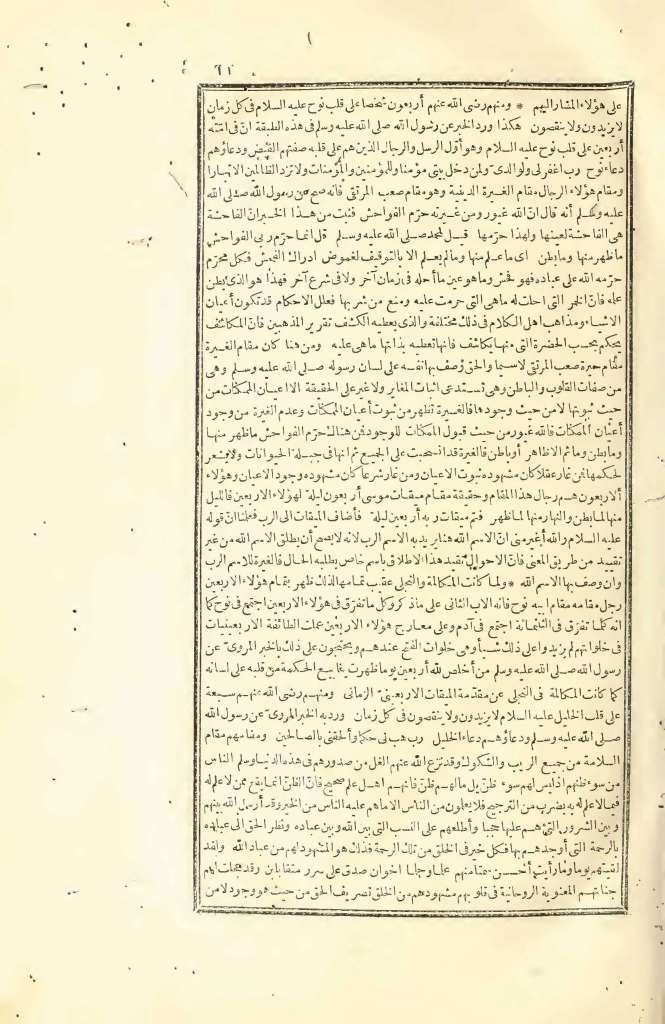 ١١
على هؤلاء المشار اليهم * ومنهم رضى الله عنهم أربعون شخصا على قلب نوح عليه السلام فى كل زمان
لا يزيدون ولا ينقصون هكذا ورد الخبر عن رسول الله صلى الله عليه وسلم فى هذه الطبقة ان فى امته
أربعين على قلب نوح عليه السلام وهو أول الرسل والرجال الذين هم على قلبه صفتهم القبض ودعاؤهم
دعاء نوح رب اغفر لى ولوالدى ولمن دخل بيتى مؤمنا وللمؤمنين والمؤمنات ولا تزد الظالمين الا تبارا
ومقام هؤلاء الرجال مقام الغيرة الدينية وهو مقام صعب المرتقى فانه صح عن رسول الله صلى الله
عليه وسلم أنه قال ان الله غيور ومن غيرته حرم الفواحش فثبت من هذا الخبر ان الفاحشة
هى الفاحشة لعينها ولهذا حرمها قيل لمحمد صلى الله عليه وسلم قل انما حرم ربى الفواحش
ما ظهر منها وما بطن اى ما علم منها وما لم يعلم الا بالتوقيف لغموض ادراك الفحش فكل محرم
حرمه الله على عباده فهو فحش وما هو عين ما أحله فى زمان آخر ولا فى شرع آخر فهذا هو الذى بطن
علمه فان الخمر التى احلت له ما هى التى حرمت عليه ومنع من شربها فعلل الاحكام قد تكون أعيان
الاشياء ومذاهب اهل الكلام فى ذلك مختلفة والذى يعطيه الكشف تقرير المذهبين فان المكاشف
يحكم بحسب الحضرة التى منها يكاشف فانها تعطيه بذاتها ما هى عليه ومن هنا كان مقام الغيرة
مقام حيرة صعب المرتقى لا سيما والحق وصف بها نفسه على لسان رسوله صلى الله عليه وسلم وهى
من صفات القلوب والباطن وهى تستدعى اثبات المغاير ولا غير على الحقيقة الا اعيان الممكنات من
حيث ثبوتها لا من حيث وجودها فالغيرة تظهر من ثبوت أعيان الممكنات وعدم الغيرة من وجود
أعيان الممكنات فالله غيور من حيث قبول الممكنات للوجود فمن هنالك حرم الفواحش ما ظهر منها
وما بطن وما ثم الا ظاهر أو باطن فالغيرة قد انسحبت على الجميع ثم انها فى جبلة الحيوانات ولا يشعر
لحكمها فمن غار عقلا كان مشهوده ثبوت الاعيان ومن غار شرعا كان مشهوده وجود الاعيان وهؤلاء
الاربعون هم رجال هذا المقام وحقيقة مقام ميقات موسى أربعون ليلة لهؤلاء الاربعين فالليل
منها لما بطن والنهار منها لما ظهر فتم ميقات ربه أربعين ليلة فأضاف الميقات الى الرب فعلمنا ان قوله
عليه السلام والله أغير منى ان الاسم الله هنا يريد به الاسم الرب لانه لا يصح أن يطلق الاسم الله من غير
تقييد من طريق المعنى فان الاحوال تقيد هذا الاطلاق باسم خاص يطلبه الحال فالغيرة للاسم الرب
وان وصف بها الاسم الله * ولما كانت المكالمة والتجلى عقيب تمامها لذلك ظهر بتمام هؤلاء الاربعين
رجل مقامه مقام ابيه نوح فانه الاب الثانى على ما ذكر وكل ما تفرق فى هؤلاء الاربعين اجتمع فى نوح كما
انه كلما تفرق فى الثلثمائة اجتمع فى آدم وعلى معارج هؤلاء الاربعين عملت الطائفة الاربعينيات
فى خلواتهم لم يزيدوا على ذلك شيأ وهى خلوات الفتح عندهم ويحتجون على ذلك بالخبر المروى عن
رسول الله صلى الله عليه وسلم من أخلص لله أربعين يوما ظهرت ينابيع الحكمة من قلبه على لسانه
كما كانت المكالمة فى التجلى عن مقدمة الميقات الاربعينى الزمانى ومنهم رضى الله عنهم سبعة
على قلب الخليل عليه السلام لا يزيدون ولا ينقصون فى كل زمان ورد به الخبر المروى عن رسول الله
صلى الله عليه وسلم ودعاؤهم دعاء الخليل رب هب لى حكما وألحقنى بالصالحين ومقامهم مقام
السلامة من جميع الريب والشكوك وقد نزع الله عنهم الغل من صدورهم فى هذه الدنيا وسلم الناس
من سوء ظنهم اذ ليس لهم سوء ظن بل ما لهم ظن فانهم اهل علم صحيح فان الظن انما يقع ممن لا علم له
فيما لا علم له به بضرب من الترجيح فلا يعلمون من الناس الا ما هم عليه الناس من الخير وقد أرسل الله بينهم
وبين الشرور التى هم عليها حجبا وأطلعهم على النسب التى بين الله وبين عباده ونظر الحق الى عباده
بالرحمة التى أوجدهم بها فكل خير فى الخلق من تلك الرحمة فذلك هو المشهود لهم من عباد الله ولقد
لقيتهم يوما وما رأيت أحسن سمتا منهم علما وحلما اخوان صدق على سرر متقابلين وقد عجلت لهم
جناتهم المعنوية الروحانية فى قلوبهم مشهودهم من الخلق تصريف الحق من حيث هو وجود لا من